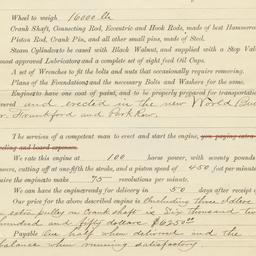 Wheel to weigh 16000 lb
Crank Shaft, Connecting Rod, Eccentric and Hook Rods, made of best Hammered
Piston Rod, Crank Pin, and all other small pins, made of Steel.
Steam Cylinder to be cased with Black Walnut, and supplied with a Stop Val
most approved Lubricator, and a complete set of sight feed Oil Cups.
A set of Wrenches to fit the bolts and nuts that occasionally require removing.
Plans of the Foundation, and the necessary Bolts and Washers for the same.
Engine to have one coat of paint, and to be properly prepared for transportation
and erected in the new World Bui
Frankford and Park Row.
The services of a competent man to erect and start the engine, you paying extra
eling and board expenses.
We rate this engine at 100 horse power, with seventy pounds
cutting off at one-fifth the stroke, and a piston speed of 450 feet per minute
quire the engine to make 75 revolutions per minute.
We can have the engine ready for delivery in 50 days after receipt
Our price for the above described engine is Including three Idlers
extra pulley on Crank shaft is Six thousand two
hundred and fifty dollars $6250.00
Payable One half when delivered and the
balance when running satisfactory.